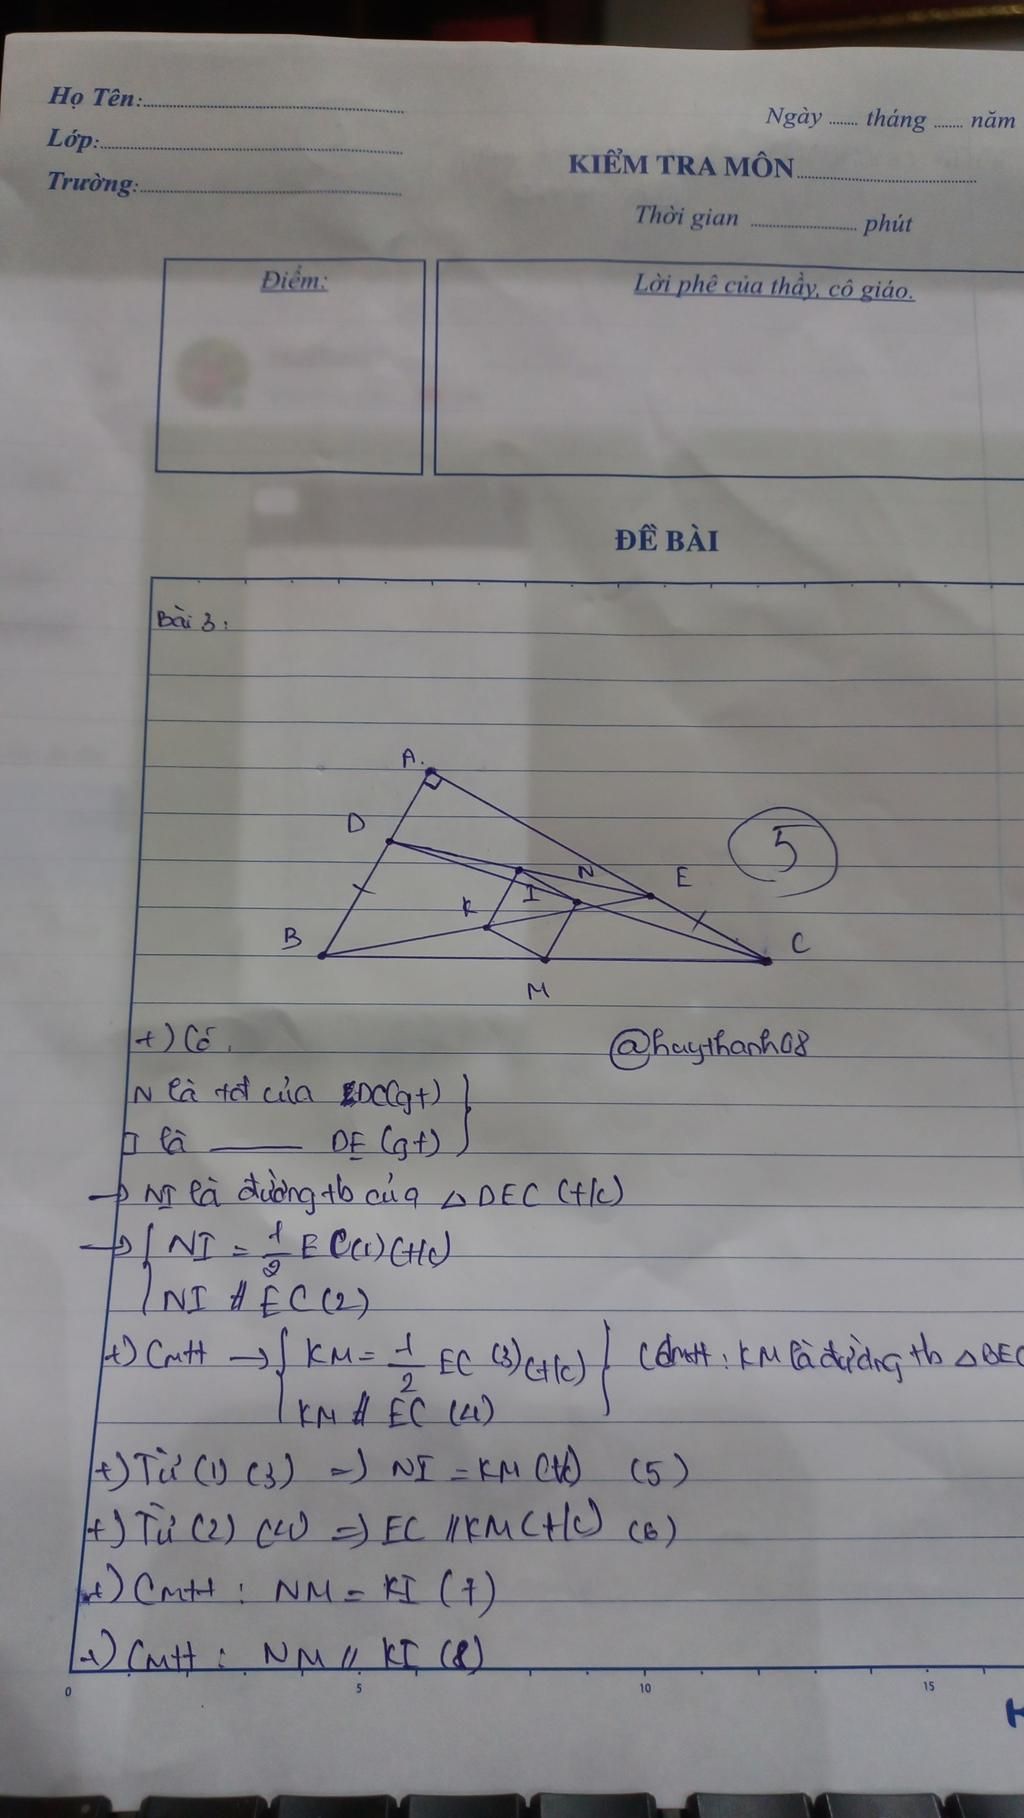 Họ Tên:
Ngày ....... tháng ....... năm
Lớp:
KIỂM TRA MÔN
Trường:
Thời gian ............ phút
Điểm:
Lời phê của thầy, cô giáo.
ĐỀ BÀI
Bài 3:
A
D
5
N
E
I
K
B
C
M
+) Có
@huythanh08
N là tđ của DC (gt)
I là ——— DE (gt)
→ NI là đường tb của △DEC (t/c)
→ { NI = 1/2 EC (1) (t/c)
NI // EC (2)
+) CMTT → { KM = 1/2 EC (3) (t/c) } (CMTT: KM là đường tb △BEC
KM // EC (4)
+) Từ (1) (3) => NI = KM (t/c) (5)
+) Từ (2) (4) => EC // KM (t/c) (6)
+) CMTT: NM = KI (7)
+) CMTT: NM // KI (8)
0 5 10 15